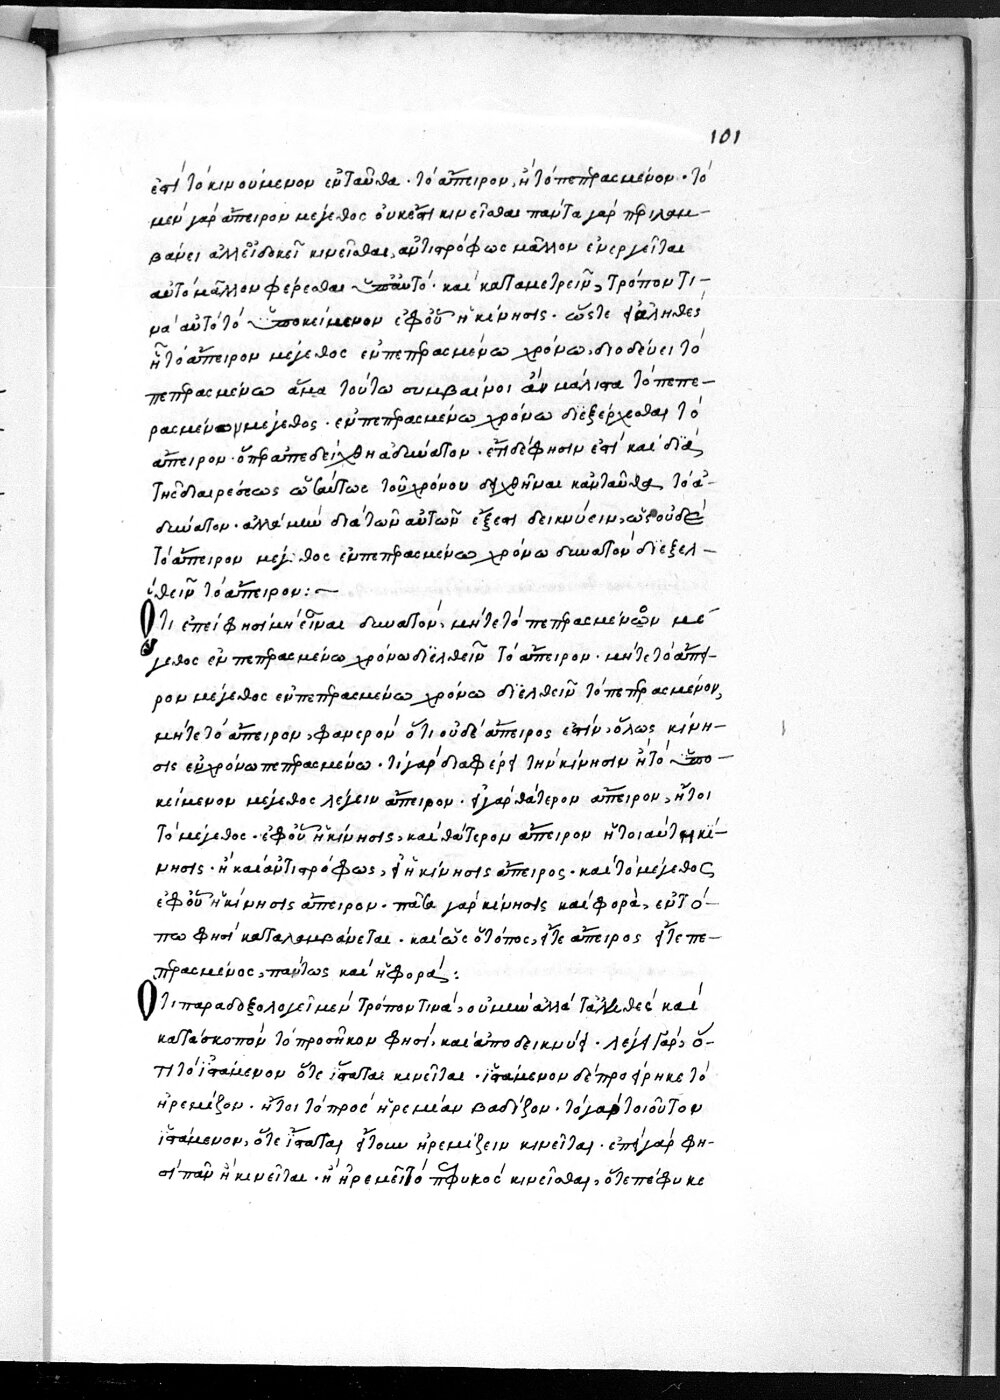 101
ἐστί τὸ κινούμενον ἐνταῦθα · τὸ ἄπειρον, ἢ τὸ πεπερασμένον · τὸ
μὲν γὰρ ἄπειρον μέγεθος οὐκ ἔστι κινεῖσθαι πάντα γὰρ περιλαμ-
βάνει ἀλλ' εἰ δοκεῖ κινεῖσθαι, ἀντιστρόφως μᾶλλον ἐνεργεῖται
αὐτὸ μᾶλλον φέρεσθαι ὑπ' αὐτό · καὶ καταμετρεῖν, τρόπον τι-
νὰ αὐτὸ τὸ ὑποκείμενον ἐφ' οὗ ἡ κίνησις · ὥστε εἰ ἀληθὲς
ἦ τὸ ἄπειρον μέγεθος ἐν πεπερασμένω χρόνω, διοδεύει τὸ
πεπερασμένω ἅμα τούτω συμβαίνοι ἂν μάλιστα τὸ πεπε-
ρασμένον μέγεθος · ἐν πεπερασμένω χρόνω διεξέρχεσθαι τὸ
ἄπειρον · ὅπερ ἀπεδείχθη ἀδύνατον · ἐπεὶ δέ φησιν ἐστί καὶ διὰ
τῆς διαιρέσεως ὡσαύτως τοῦ χρόνου δειχθῆναι κἀνταῦθα τὸ ἀ-
δύνατον · ἀλλὰ μὴν διὰ τῶν αὐτῶν ἔξεστι δεικνύειν, ὡς οὐδὲ
τὸ ἄπειρον μέγεθος ἐν πεπερασμένω χρόνω δυνατὸν διεξελ-
θεῖν τὸ ἄπειρον :~
Ὅτι ἐπεί φησι μὴ εἶναι δυνατὸν, μήτε τὸ πεπερασμένον μέ-
γεθος ἐν πεπερασμένω χρόνω διελθεῖν τὸ ἄπειρον · μήτε τὸ ἄπει-
ρον μέγεθος ἐν πεπερασμένω χρόνω διελθεῖν τὸ πεπερασμένον,
μήτε τὸ ἄπειρον, φανερὸν ὅτι οὐδὲ ἄπειρος ἐστὶν, ὅλως κίνη-
σις ἐν χρόνω πεπερασμένω · τί γὰρ διαφέρει τὴν κίνησιν ἢ τὸ ὑπο-
κείμενον μέγεθος λέγειν ἄπειρον · εἰ γὰρ θάτερον ἄπειρον, ἤτοι
τὸ μέγεθος · ἐφ' οὗ ἡ κίνησις, καὶ θάτερον ἄπειρον ἤτοι αὐτὴ ἡ κί-
νησις · ἢ καὶ ἀντιστρόφως, εἰ ἡ κίνησις ἄπειρος · καὶ τὸ μέγεθος
ἐφ' οὗ ἡ κίνησις ἄπειρον · πᾶσα γὰρ κίνησις καὶ φορὰ, ἐν τό-
πω φησὶ καταλαμβάνεται · καὶ ὡς ὁ τόπος, εἴτε ἄπειρος εἴτε πε-
περασμένος, πάντως καὶ ἡ φορά :
Ὅτι παραδοξολογεῖ μὲν τρόπον τινὰ, οὐ μὴν ἀλλὰ τἀληθὲς καὶ
κατὰ σκοπὸν τὸ προσῆκον φησὶ, καὶ ἀποδεικνύει · λέγει γὰρ, ὅ-
τι τὸ ἱστάμενον ὅτε ἵσταται κινεῖται · ἱστάμενον δὲ προείρηκε τὸ
ἠρεμίζον · ἤτοι τὸ πρὸς ἠρεμίαν βαδίζον · τὸ γὰρ τοιοῦτον
ἱστάμενον, ὅτε ἵσταται ἤτουν ἠρεμίζειν κινεῖται · ἐπεὶ γὰρ φη-
σὶ πᾶν ἢ κινεῖται · ἢ ἠρεμεῖ τὸ πεφυκὸς κινεῖσθαι, ὅτε πέφυκε